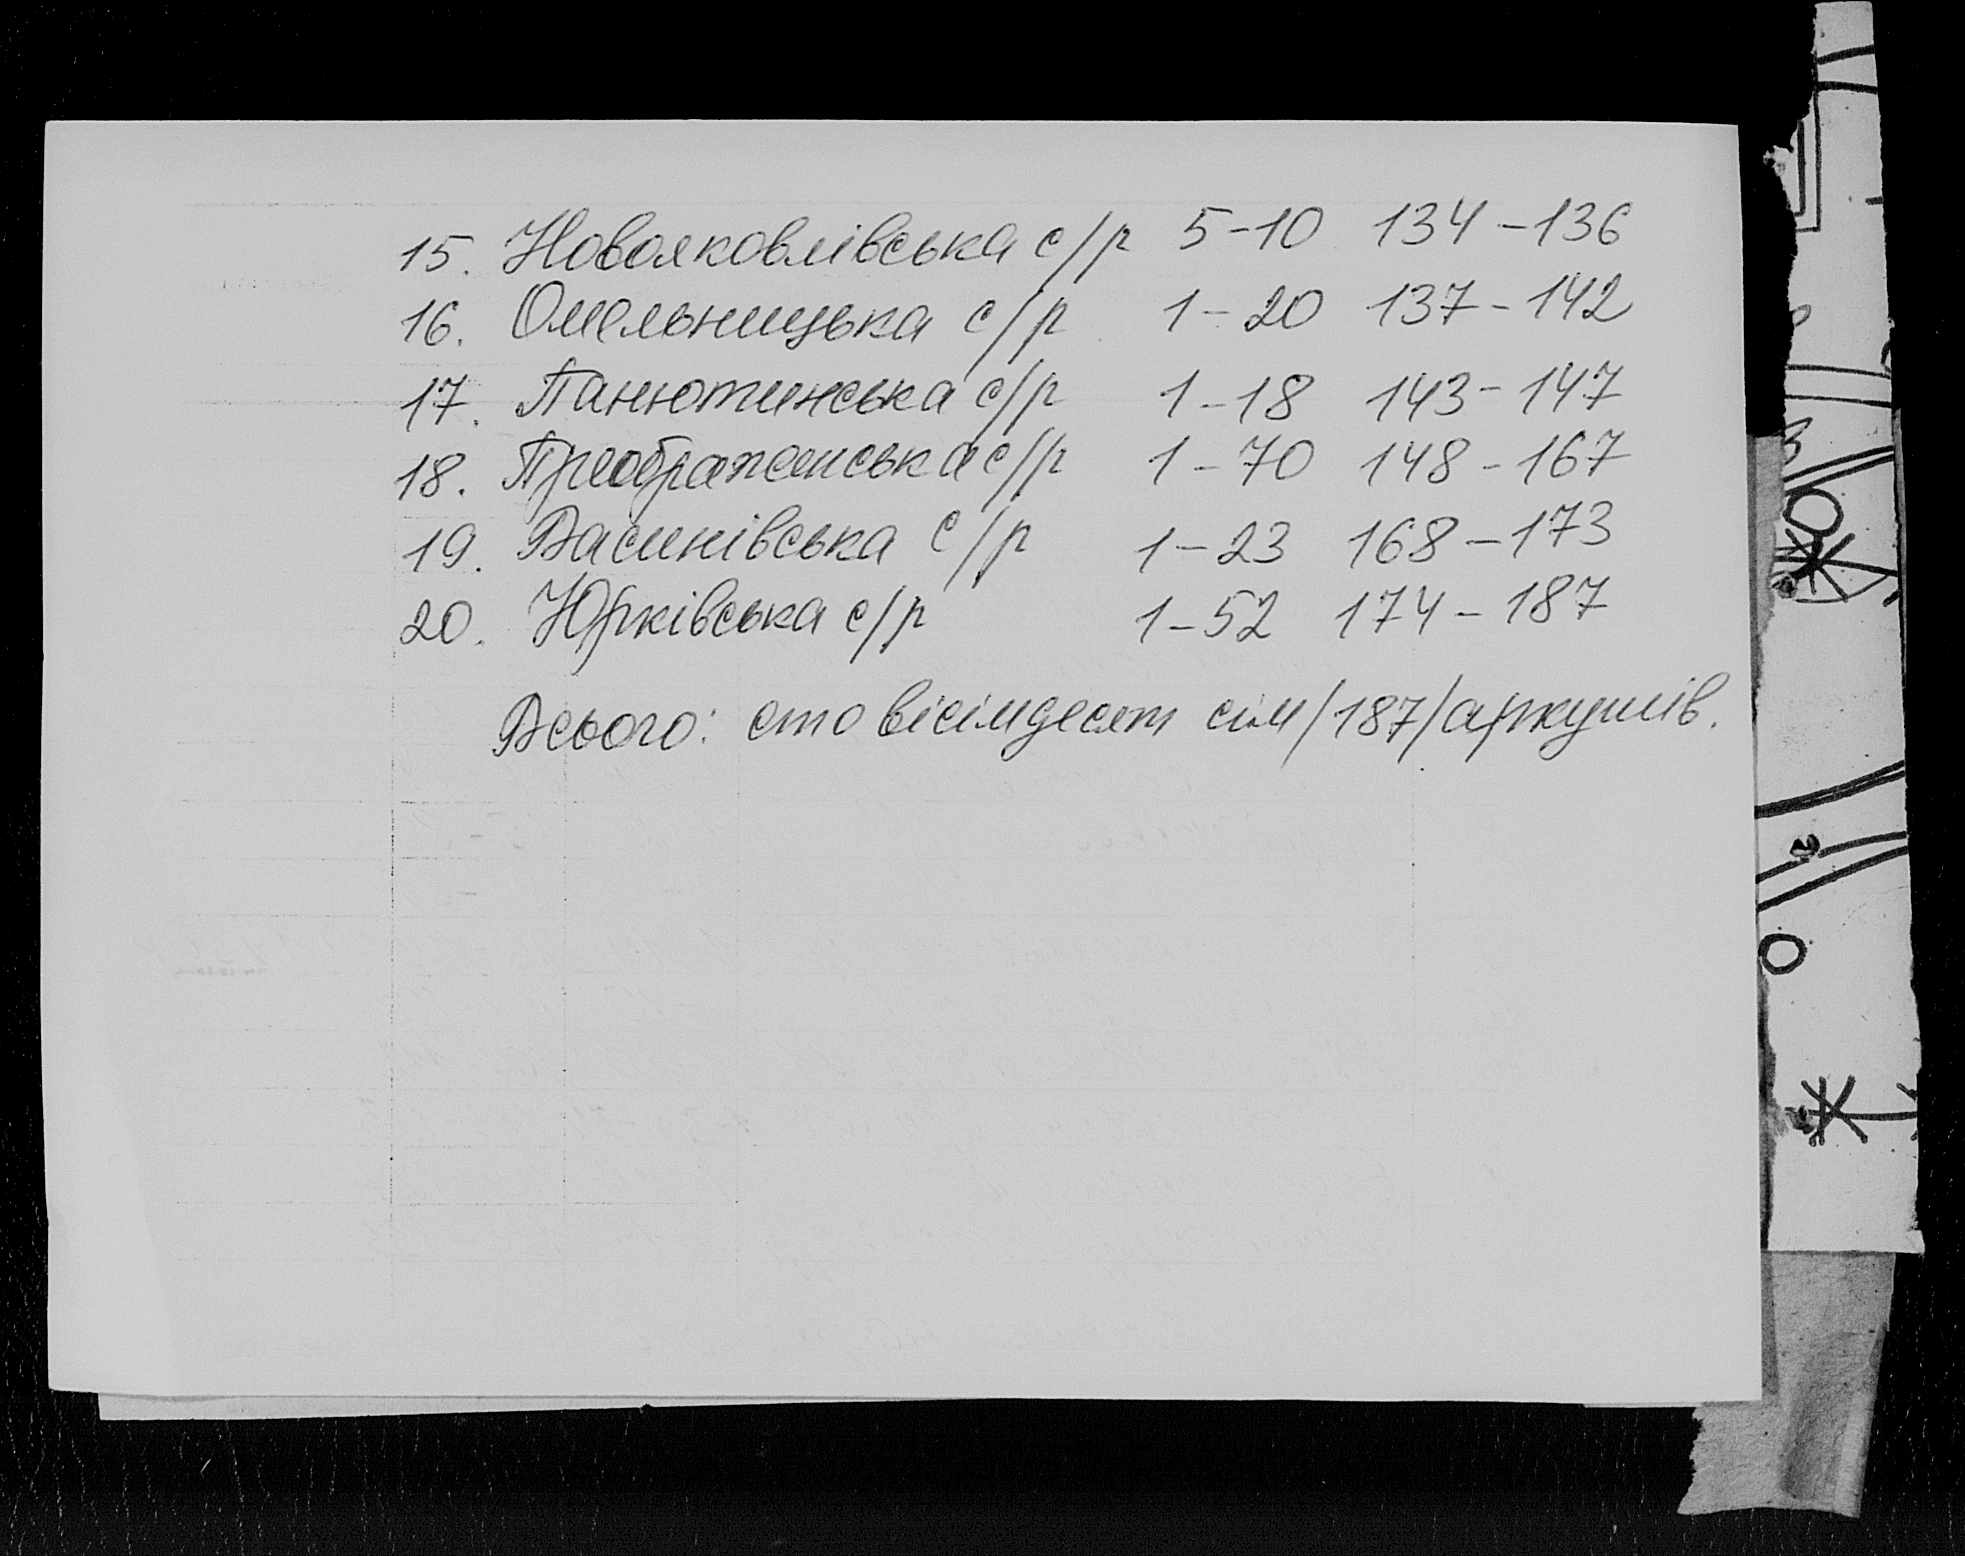 15. Новояковлівська с/р 5-10 134-136
16. Омельницька с/р 1-20 137-142
17. Панютинська с/р 1-18 143-147
18. Преображенська с/р 1-70 148-167
19. Васинівська с/р 1-23 168-173
20. Юрківська с/р 1-52 174-187
Всього: сто вісімдесят сім /187/ аркушів.